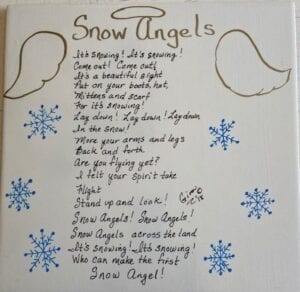 Snow Angels
It's snowing! It's snowing!
Come out! Come out!
It's a beautiful sight
Put on your boots, hat,
Mittens and scarf
For it's snowing!
Lay down! Lay down! Lay down
In the snow!
Move your arms and legs
Back and forth
Are you flying yet?
I felt your spirit take
Flight
Stand up and look!
Snow Angels! Snow Angels!
Snow Angels across the land
It's snowing! It's snowing!
Who can make the first
Snow Angel!